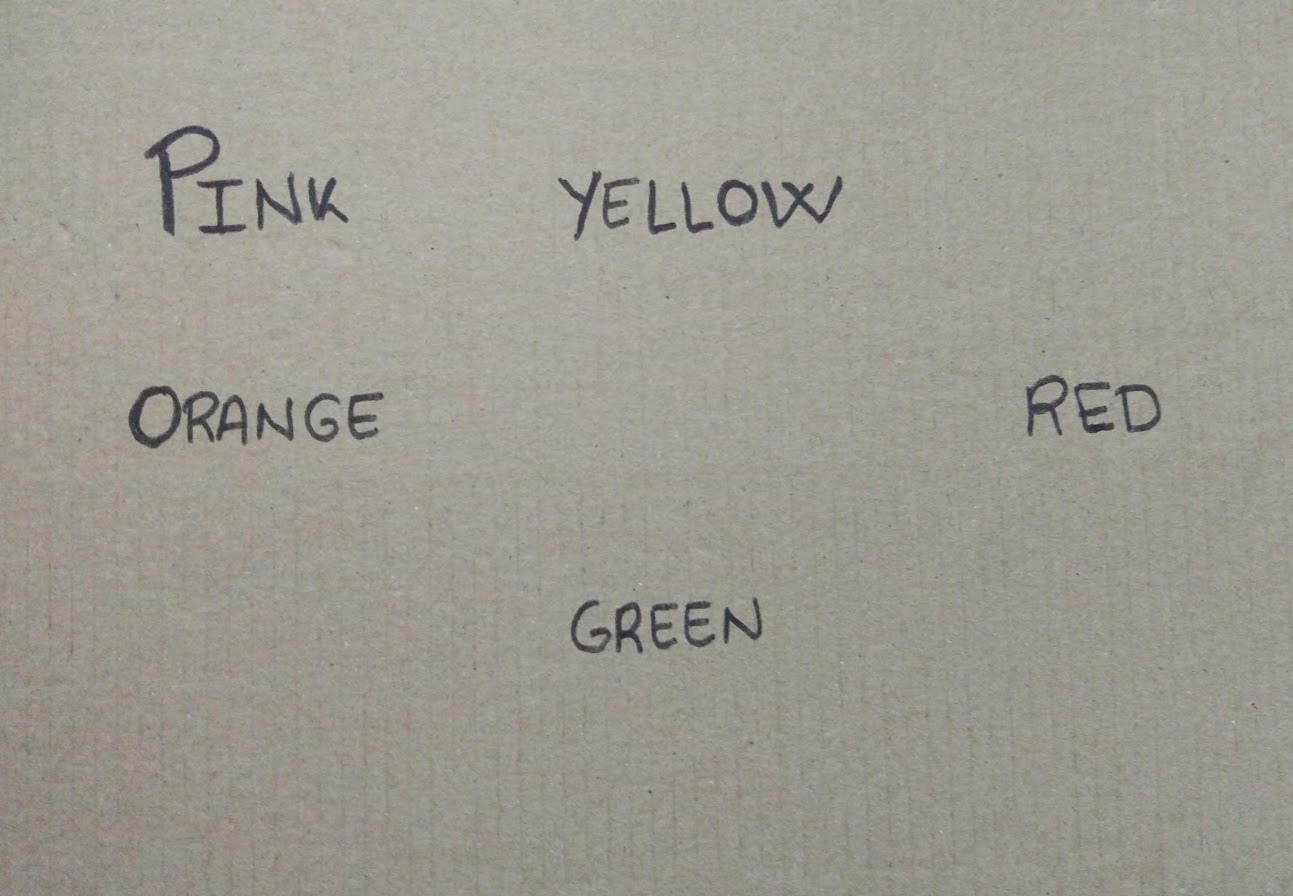 PINK YELLOW
ORANGE RED
GREEN